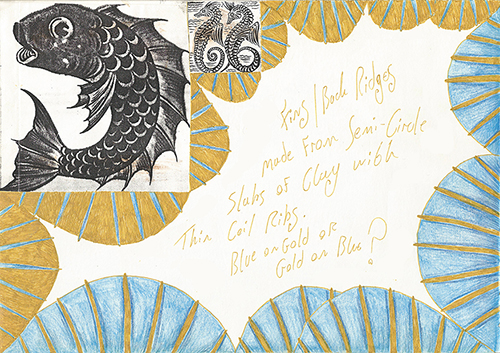 Fins/Back Ridges
made From Semi-Circle
Slabs of Clay with
Thin Coil Ribs.
Blue on Gold or
Gold on Blue?